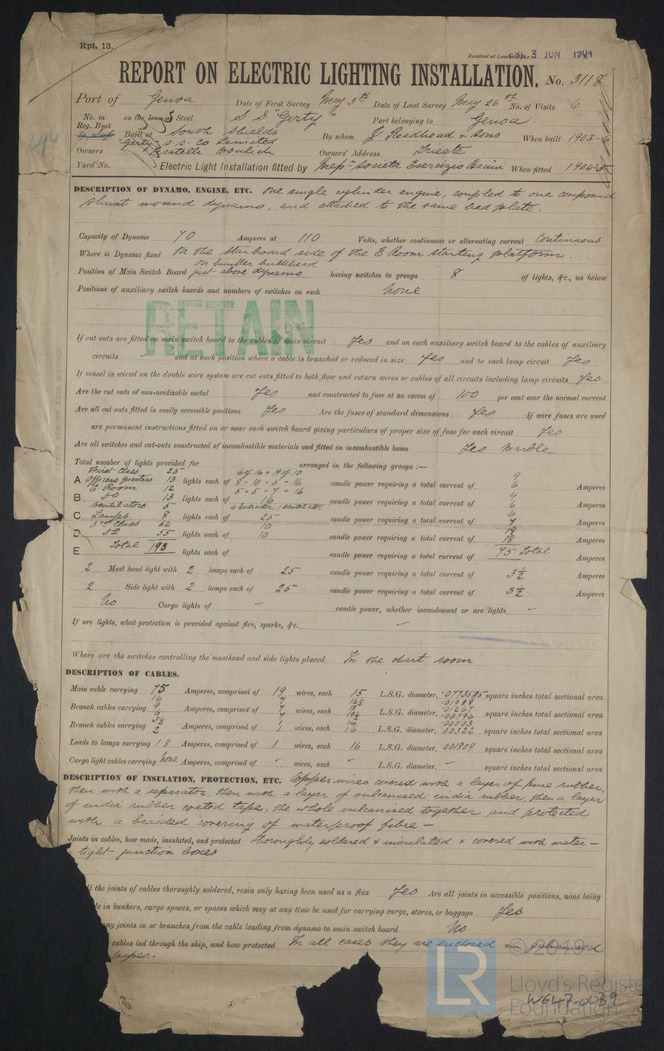 Rpt. 13.
3 JUN 1904
REPORT ON ELECTRIC LIGHTING INSTALLATION. No. 3118
Port of Genoa Date of First Survey May 3th Date of Last Survey May 26th No. of Visits 6
No. in Reg. Book on the Iron or Steel S S "Gerty" Port belonging to Genoa
Built at South Shields By whom J. Readhead & Sons When built 1903-
Owners Gerty S.S. Co Limited Owners' Address Trieste
Yard No. Electric Light Installation fitted by Messrs Societa Esercizio Bacini When fitted 1904-5
DESCRIPTION OF DYNAMO, ENGINE, ETC. One single cylinder engine, coupled to one compound
shunt wound dynamo, and attached to the same bed plate.
Capacity of Dynamo 70 Amperes at 110 Volts, whether continuous or alternating current Continuous
Where is Dynamo fixed On the starboard side of the E Room starting platform
Position of Main Switch Board on bunker bulkhead just above dynamo having switches to groups 8 of lights, &c., as below
Positions of auxiliary switch boards and numbers of switches on each None
RETAIN
If cut outs are fitted on main switch board to the cables of main circuit Yes and on each auxiliary switch board to the cables of auxiliary
circuits and at each position where a cable is branched or reduced in size Yes and to each lamp circuit Yes
If vessel is wired on the double wire system are cut outs fitted to both flow and return wires or cables of all circuits including lamp circuits Yes
Are the cut outs of non-oxidizable metal Yes and constructed to fuse at an excess of 100 per cent over the normal current
Are all cut outs fitted in easily accessible positions Yes Are the fuses of standard dimensions Yes If wire fuses are used
are permanent instructions fitted on or near each switch board giving particulars of proper size of fuse for each circuit Yes
Are all switches and cut-outs constructed of incombustible materials and fitted on incombustible bases Yes. Marble
Total number of lights provided for arranged in the following groups :—
First Class 25 6 of 16 + 19 of 10 9
A Officers quarters 13 lights each of 8 - 10 - 5 - 16 candle power requiring a total current of 6 Amperes
E Room 12 5 - 5 - 7 - 16
B Do 13 lights each of 16 candle power requiring a total current of 6 Amperes
Ventilators 5
C Lamps 8 lights each of 25 candle power requiring a total current of 7 Amperes
3rd Class 62 10 19
D Do 55 lights each of 10 candle power requiring a total current of 18 Amperes
E Total 193 lights each of candle power requiring a total current of 75 Total Amperes
2 Mast head light with 2 lamps each of 25 candle power requiring a total current of 3½ Amperes
2 Side light with 2 lamps each of 25 candle power requiring a total current of 3½ Amperes
No Cargo lights of - candle power, whether incandescent or arc lights -
If arc lights, what protection is provided against fire, sparks, &c. -
Where are the switches controlling the masthead and side lights placed In the chart room
DESCRIPTION OF CABLES.
Main cable carrying 75 Amperes, comprised of 19 wires, each 15 L.S.G. diameter, .0773685 square inches total sectional area
Branch cables carrying 9 Amperes, comprised of 7 wires, each L.S.G. diameter, square inches total sectional area
Branch cables carrying Amperes, comprised of 1 wires, each L.S.G. diameter, .00503 square inches total sectional area
2 1 16 .00322
Leads to lamps carrying 1.8 Amperes, comprised of 1 wires, each 16 L.S.G. diameter, .001809 square inches total sectional area
Cargo light cables carrying None Amperes, comprised of - wires, each - L.S.G. diameter, - square inches total sectional area
DESCRIPTION OF INSULATION, PROTECTION, ETC. Copper wires covered with a layer of pure rubber,
then with a separator, then with a layer of vulcanised india rubber, then a layer
of india rubber coated tape, the whole vulcanised together and protected
with a braided covering of waterproof fibre -
Joints in cables, how made, insulated, and protected Thoroughly soldered & insulated & covered with water-
tight junction boxes
ll the joints of cables thoroughly soldered, resin only having been used as a flux Yes Are all joints in accessible positions, none being
le in bunkers, cargo spaces, or spaces which may at any time be used for carrying cargo, stores, or baggage Yes
ny joints in or branches from the cable leading from dynamo to main switch board No
cables led through the ship, and how protected In all cases they are enclosed in galvanised
pipes.
LR
© 2019
Lloyd's Register
Foundation
W647-0039